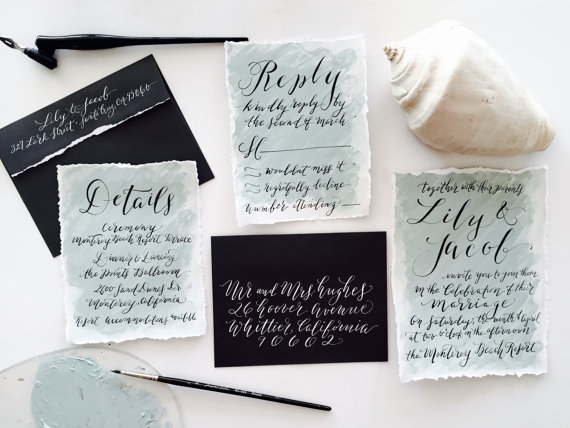 Lily & Jacob
327 Lark Street
CA 93060
Reply
kindly reply by
the second of March
M
wouldn't miss it
regretfully decline
number attending
Details
Ceremony
Monterey Beach Resort Terrace
Dinner & Dancing
the Points Ballroom
2600 Sand Dunes Dr
Monterey, California
Resort accommodations available
Mr and Mrs Hughes
26 Hoover Avenue
Whittier, California
90602
together with their parents
Lily &
Jacob
invite you to join them
in the Celebration of their
Marriage
On Saturday, the ninth of April
at two o'clock in the afternoon
the Monterey Beach Resort